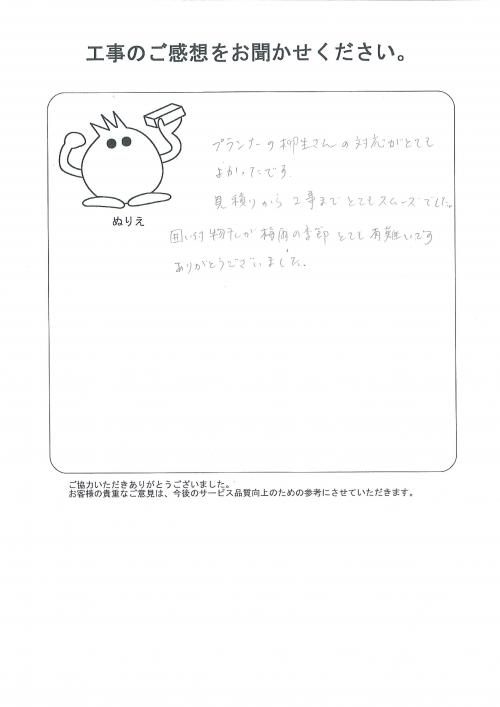 工事のご感想をお聞かせください。
プランナーの柳生さんの対応がとても
よかったです。
見積りから工事までとてもスムーズでした。
囲い付物干しが梅雨の季節とても有難いです
ありがとうございました。
ぬりえ
ご協力いただきありがとうございました。
お客様の貴重なご意見は、今後のサービス品質向上のための参考にさせていただきます。